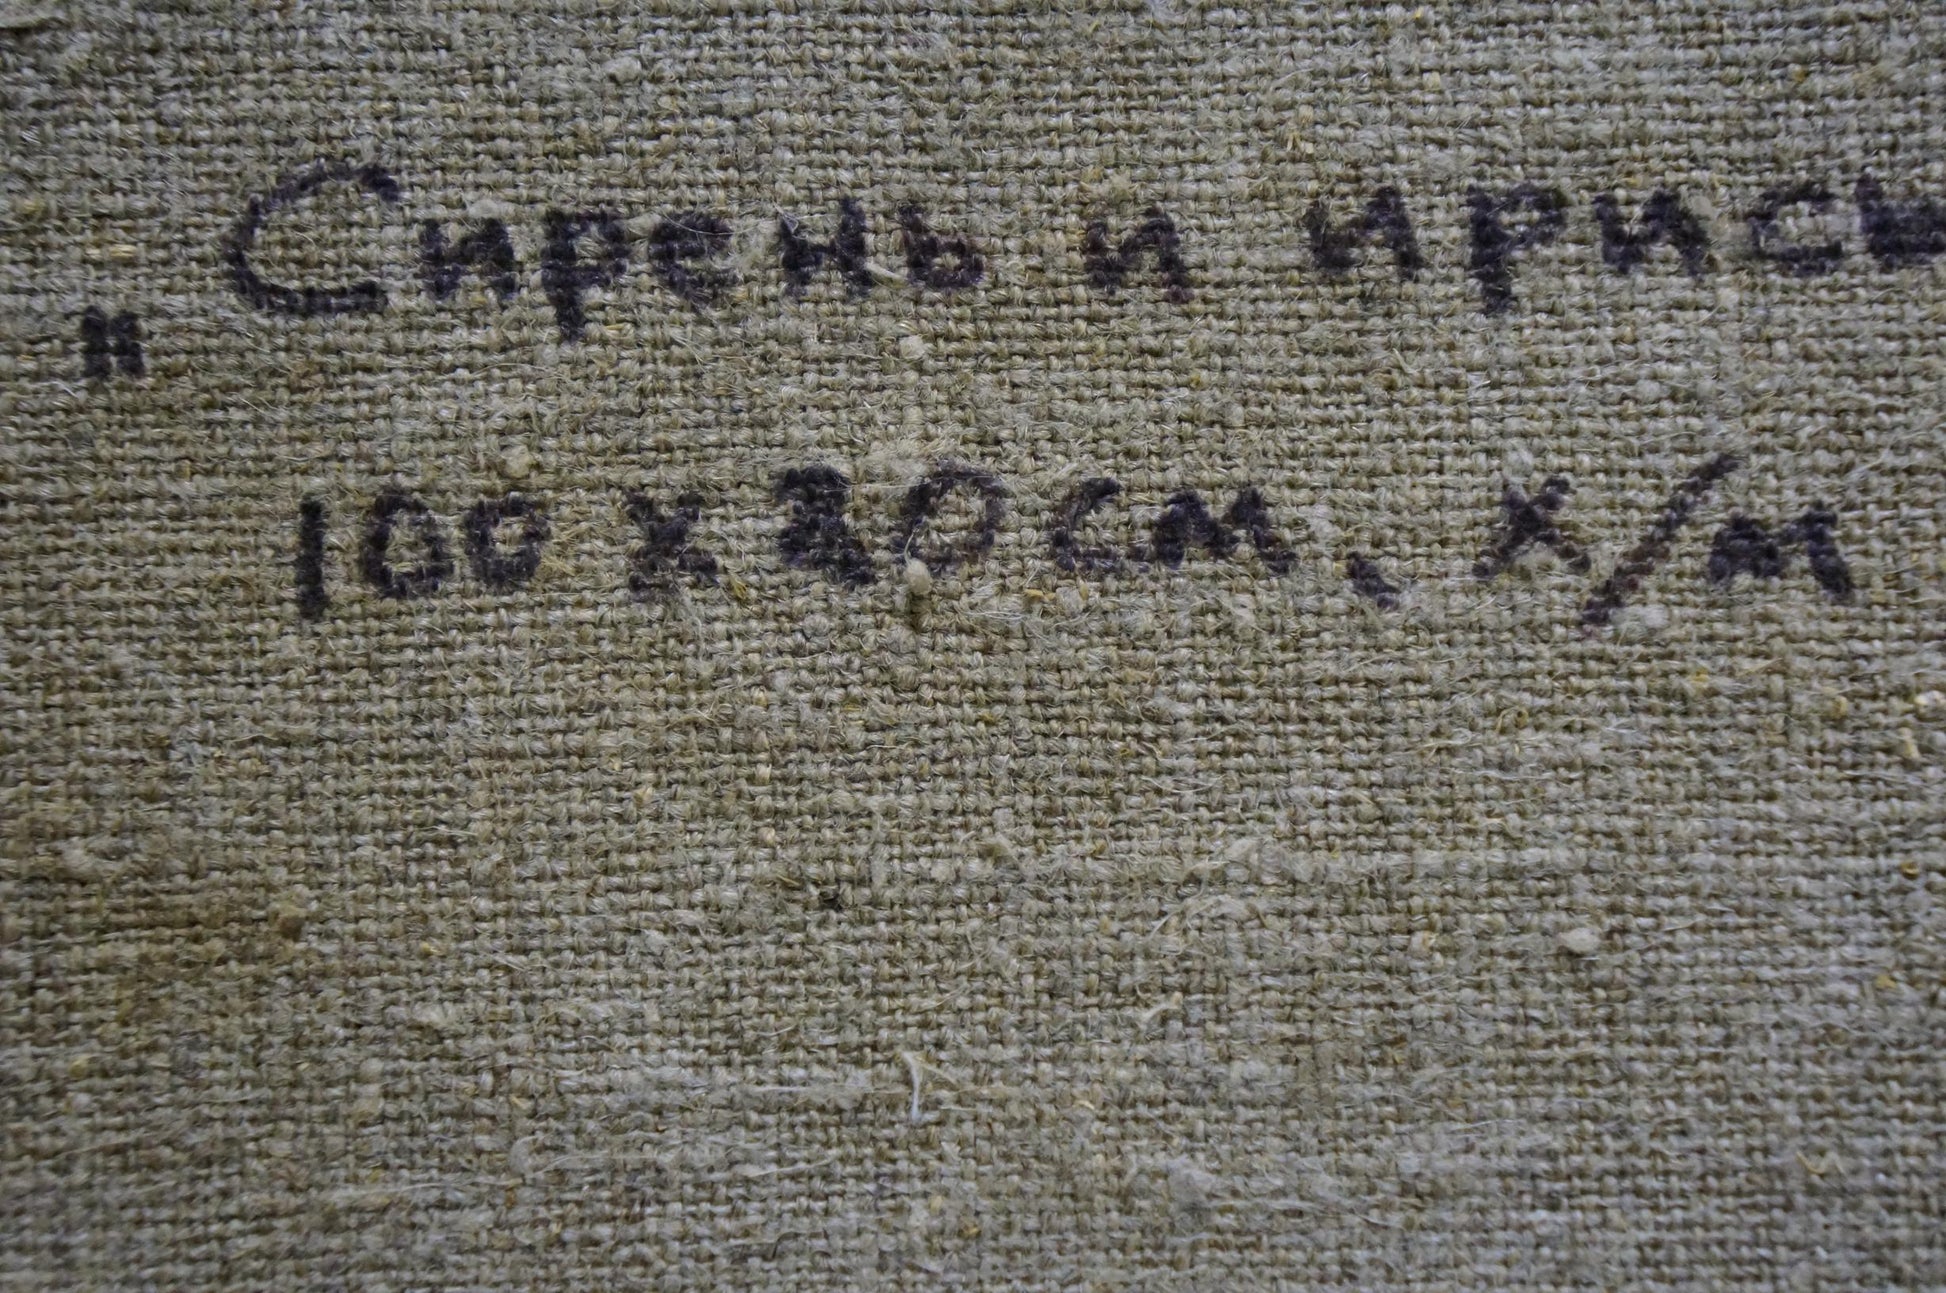 „Сирень и ирисы
100 х 80 см, х/м